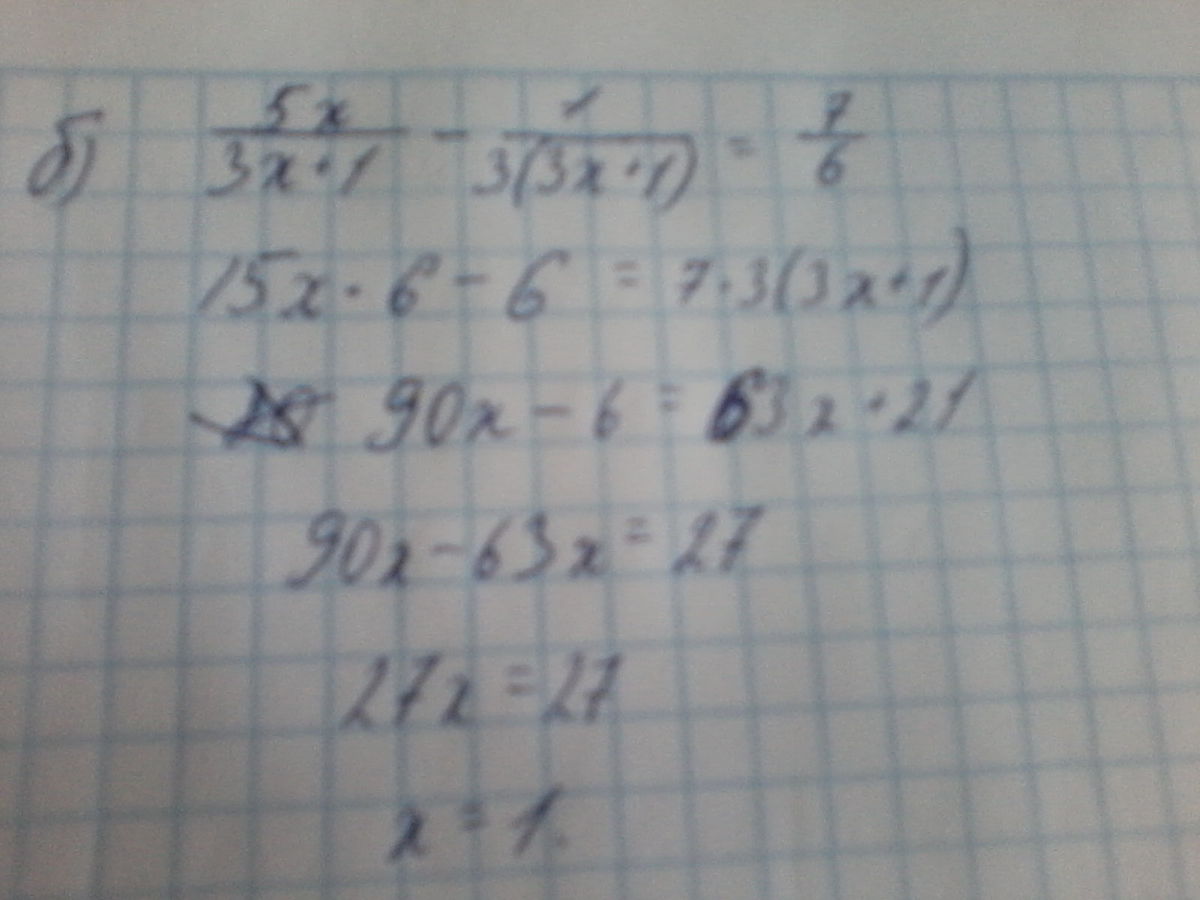 б) 5x/(3x+1) - 1/(3(3x+1)) = 7/6
15x · 6 - 6 = 7 · 3(3x+1)
90x - 6 = 63x + 21
90x - 63x = 27
27x = 27
x = 1.